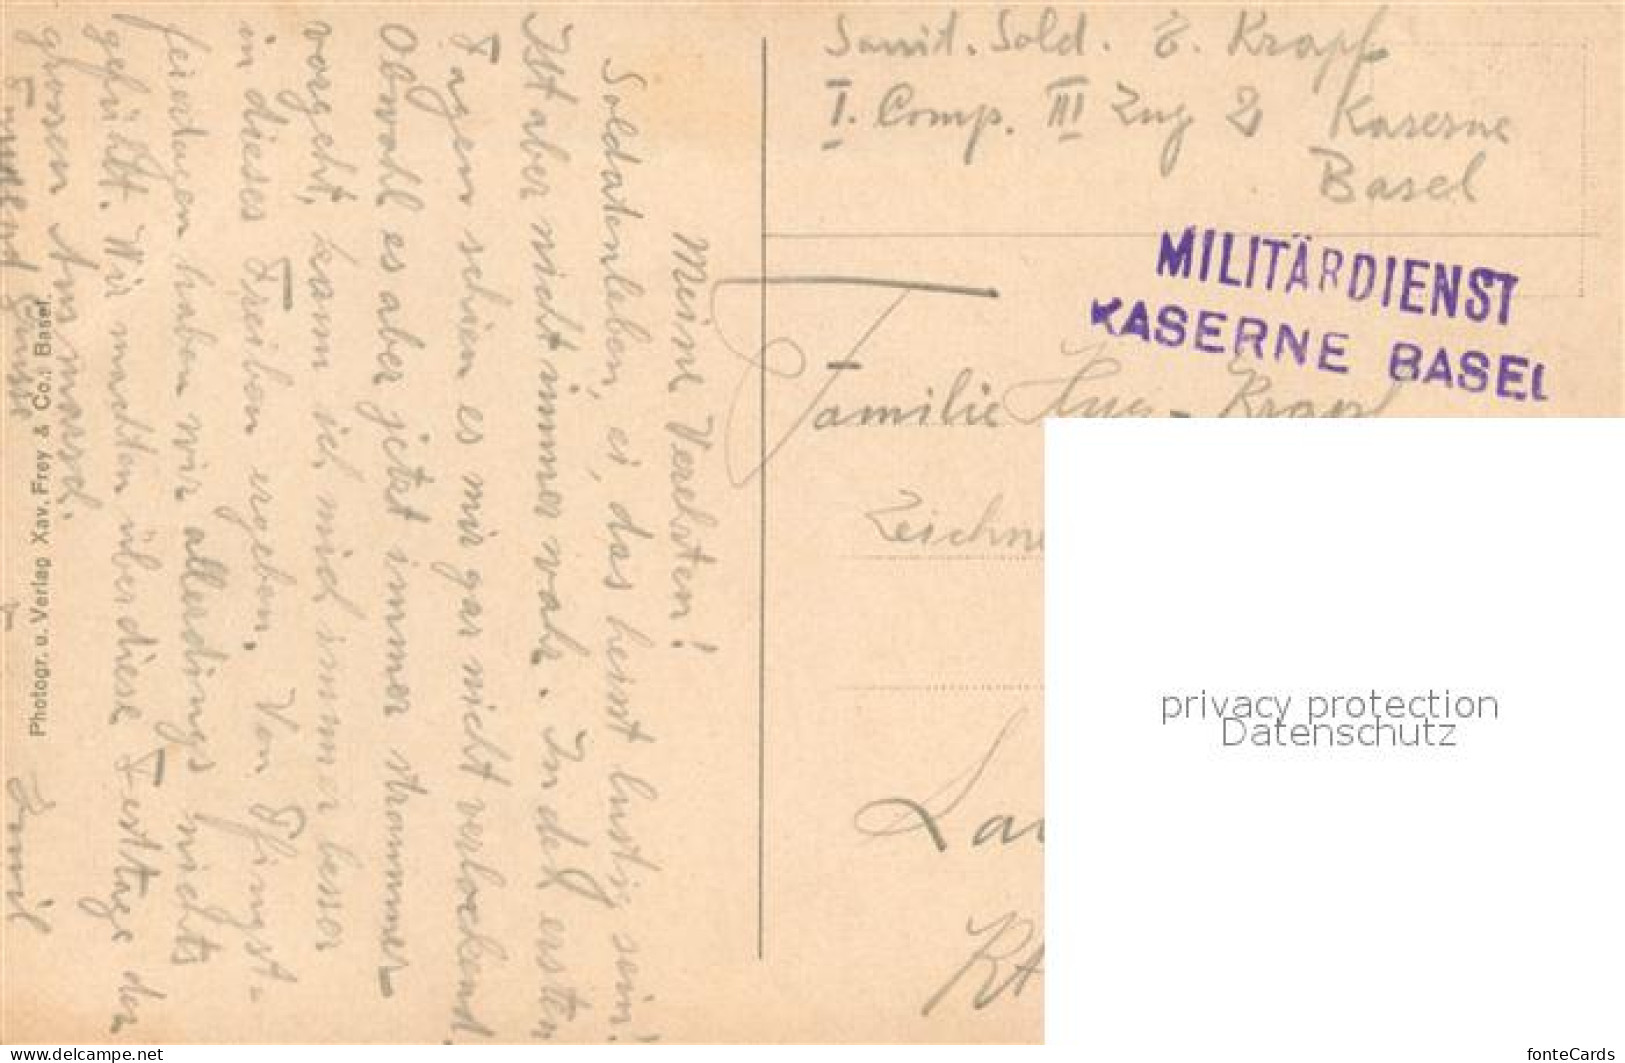 Sanit. Sold. E. Krapf
I. Comp. III Zug 2 Kaserne
Basel
MILITÄRDIENST
KASERNE BASEL
Familie Hug - Krapf
Zeichne
La
Meine Verehrten!
Soldatenleben, ei, das heisst lustig sein!
Ist aber nicht immer wahr. In den ersten
Tagen schien es mir gar nicht verlockend.
Obwohl es aber jetzt immer strammer
vorgeht, kann ich mich immer besser
in dieses Treiben ergeben. Von Pfingst-
feiertagen haben wir allerdings nichts
gefühlt. Wir machten über diese Festtage den
grossen Ausmarsch.
Grüsse
Emil
Photogr. u. Verlag Xav. Frey & Co., Basel.
privacy protection
Datenschutz
www.delcampe.net
fonteCards